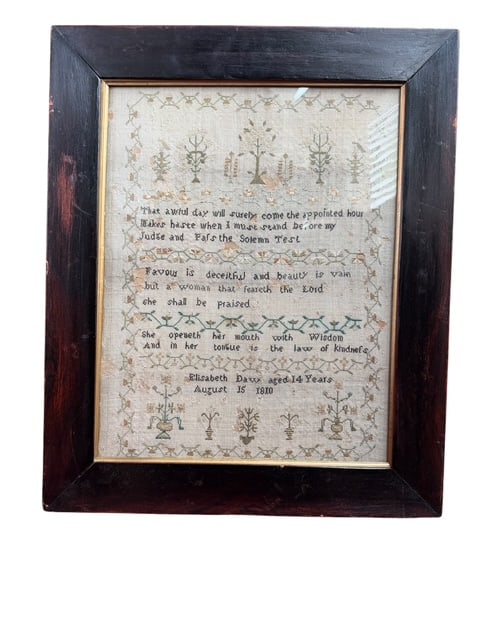 That awful day will surely come the appointed hour
Makes haste when I must stand before my
Judge and Paſs the Solemn Test
Favour is deceitful and beauty is vain
but a woman that feareth the Lord
she shall be praised
She openeth her mouth with Wisdom
And in her tongue is the law of kindneſs
Elisabeth Daw aged 14 Years
August 15 1810